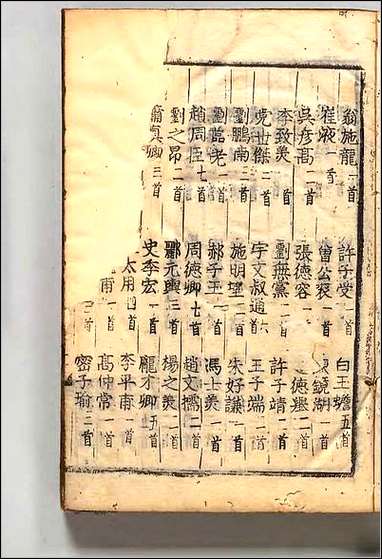 翁施龍一首 許子受一首 白玉蟾五首
崔液一首 曹公衮一首 鏡湖一首
吳彦高一首 張德容一首 德舉二首
李致美一首 劉無黨一首 許子靖二首
党世傑一首 宇文叔通六首 王子端一首
劉鵬南三首 施明望一首 朱好謙一首
劉嵓老一首 郝子玉一首 馮士美一首
趙周臣七首 周德卿七首 趙文孺二首
劉之昂二首 酈元輿三首 楊之美一首
蕭真卿三首 史季宏一首 龐才卿五首
太用四首 李平甫一首
甫一首 高仲常一首
首 密子瑜三首